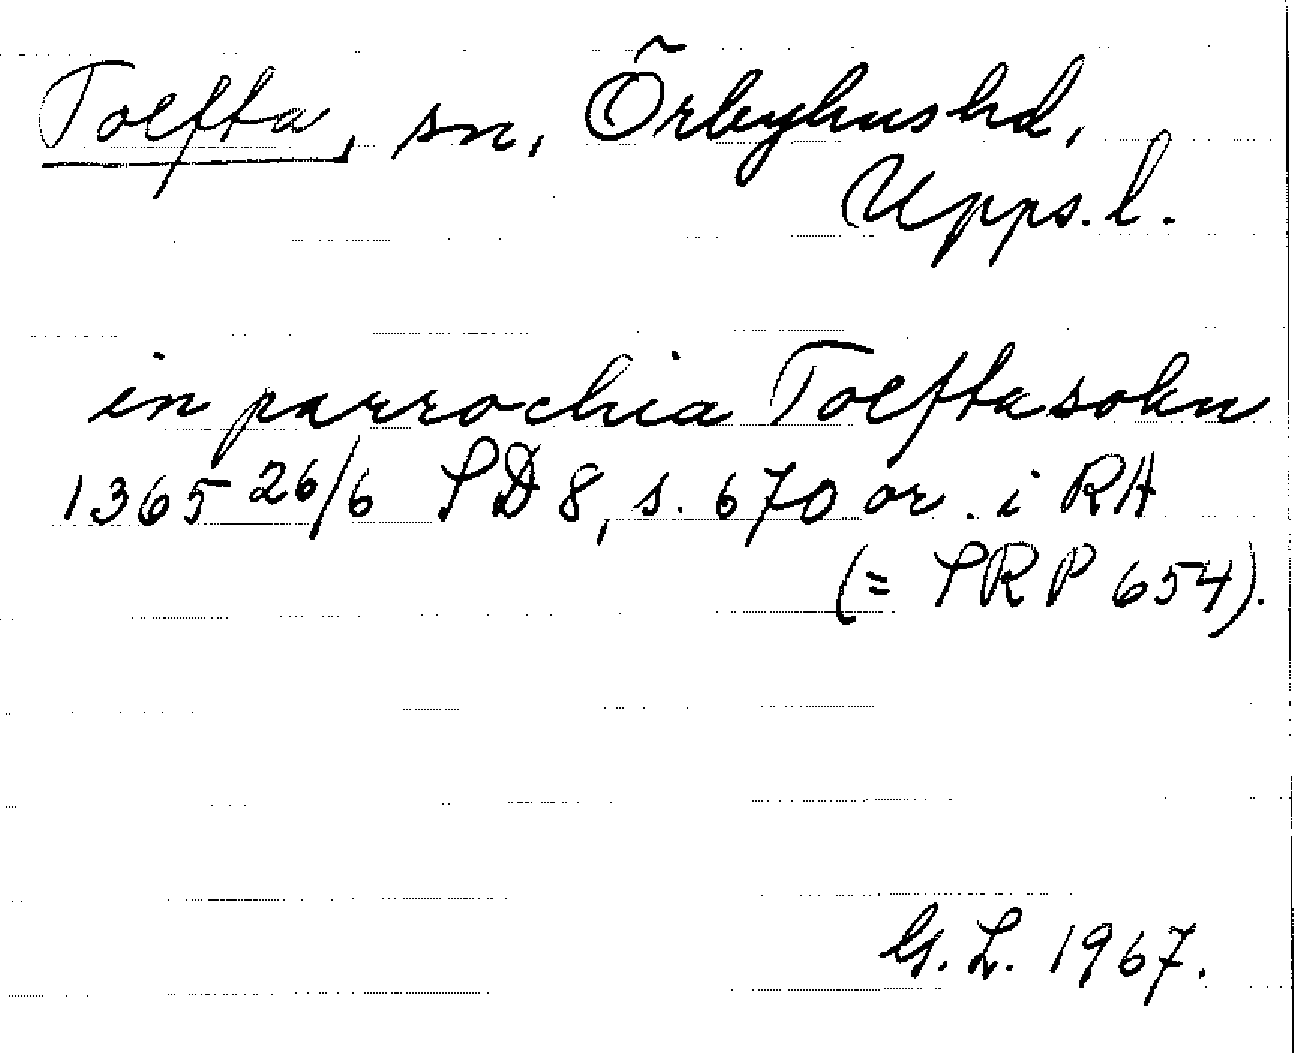 Tolfta, sn, Örbyhus hd,
Upps. l.
in parrochia Tolftasokn
1365 26/6 SD 8, s. 670 or. i RA
(= SRP 654).
G. L. 1967.